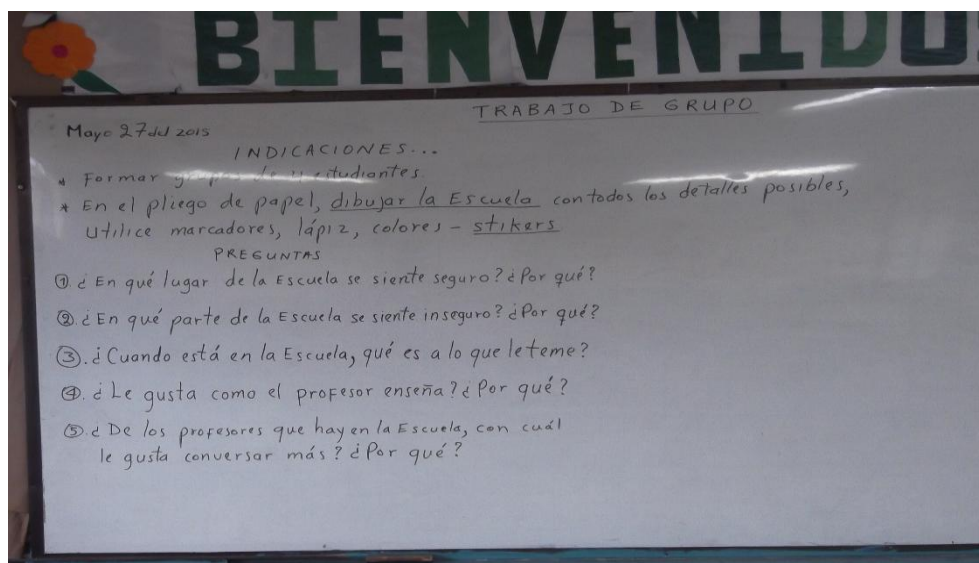 BIENVENIDO
TRABAJO DE GRUPO
Mayo 27 del 2015
INDICACIONES...
* Formar grupos de estudiantes
* En el pliego de papel, dibujar la Escuela con todos los detalles posibles,
utilice marcadores, lápiz, colores - stikers
PREGUNTAS
①. ¿En qué lugar de la Escuela se siente seguro? ¿Por qué?
②. ¿En qué parte de la Escuela se siente inseguro? ¿Por qué?
③. ¿Cuando está en la Escuela, qué es a lo que le teme?
④. ¿Le gusta como el profesor enseña? ¿Por qué?
⑤. ¿De los profesores que hay en la Escuela, con cuál
le gusta conversar más? ¿Por qué?